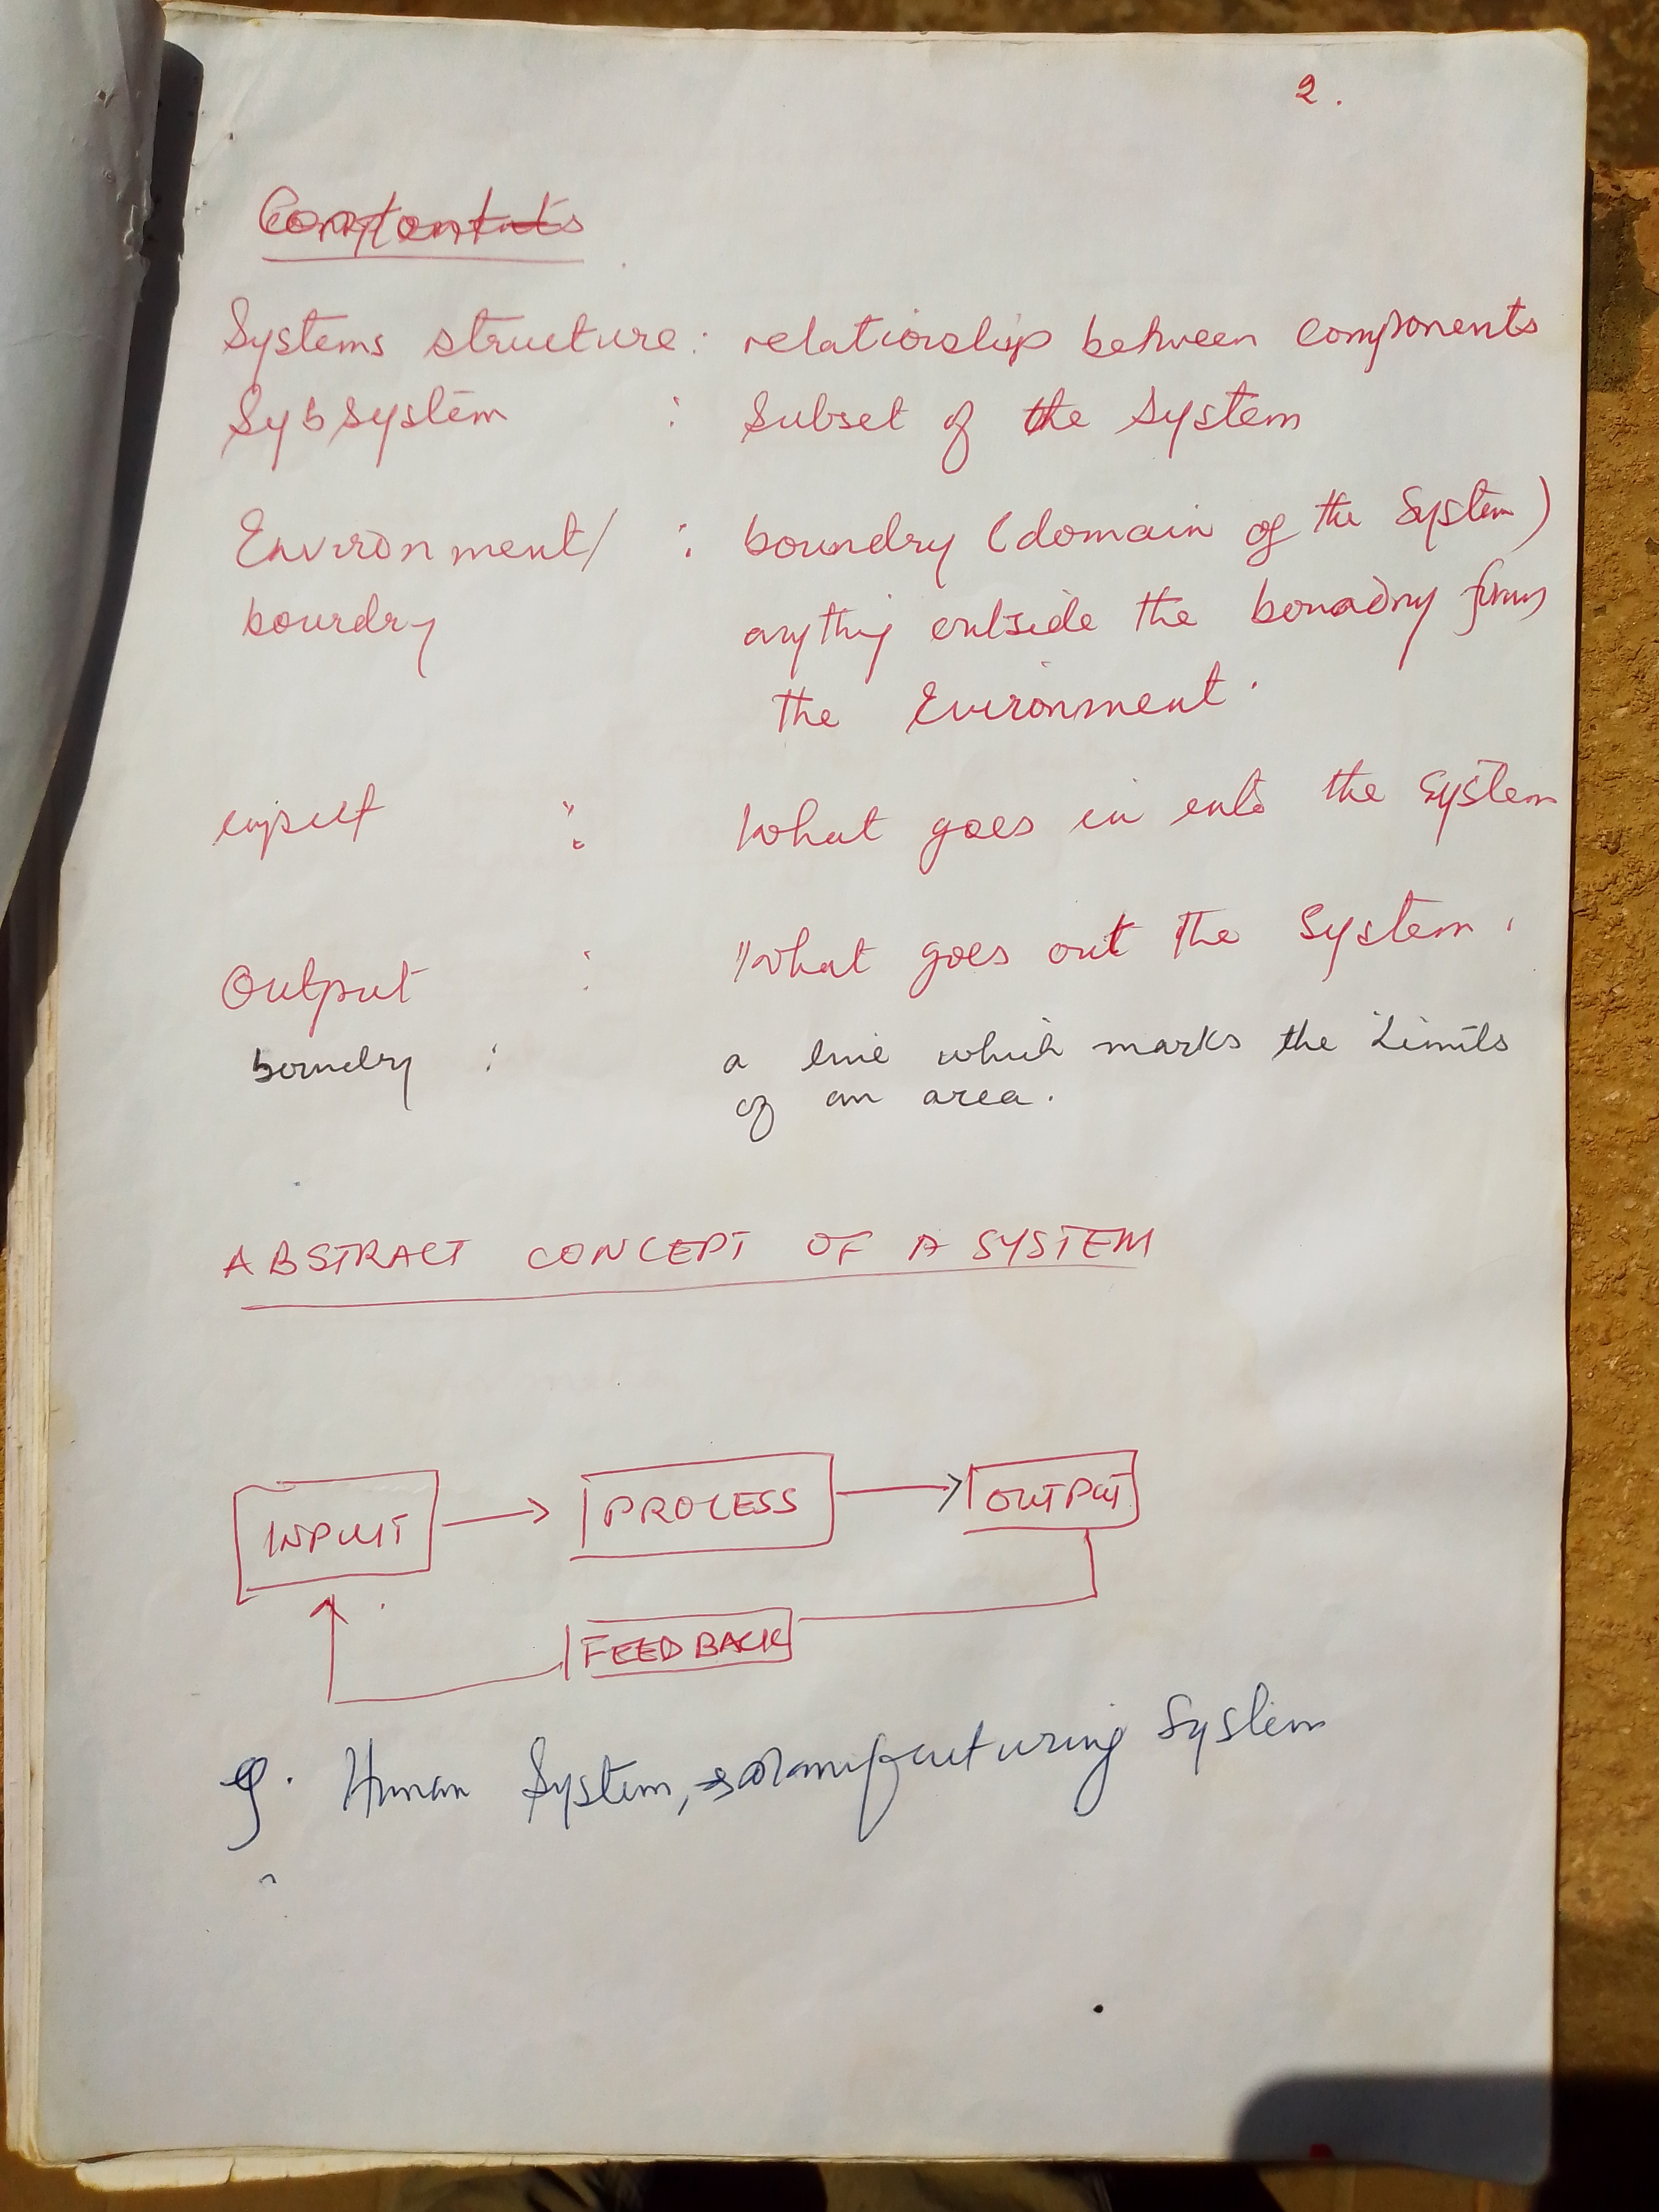 2.
Systems structure : relationship between components
Sybsystem : Subset of the System
Environment/ : boundry (domain of the System)
boundry anything outside the boundry forms
the Evironment.
input : What goes in into the System
Output : What goes out the System.
boundry : a line which marks the Limits
of an area.
ABSTRACT CONCEPT OF A SYSTEM
INPUT PROCESS OUTPUT
FEEDBACK
eg. Human System, Manufacturing System